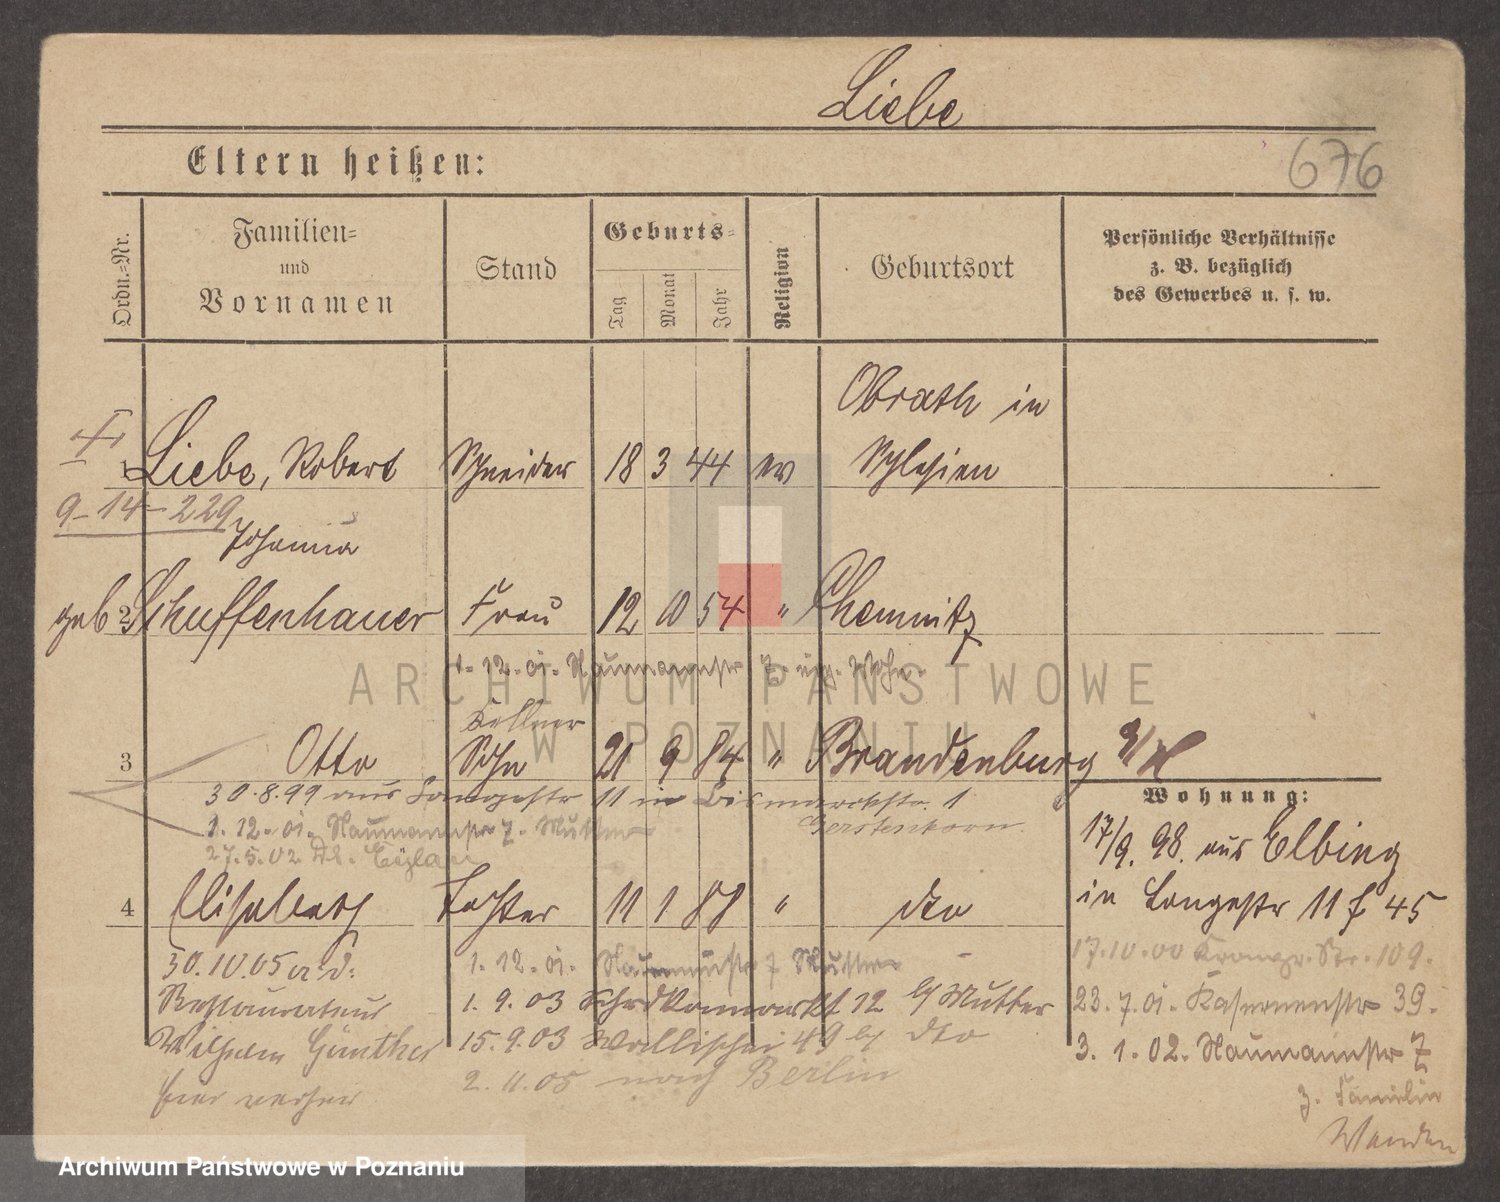 Liebe
Eltern heißen:
676
Ordn.=Nr.
Familien=
und
Vornamen
Stand
Geburts=
Tag
Monat
Jahr
Religion
Geburtsort
Persönliche Verhältnisse
z. B. bezüglich
des Gewerbes u. s. w.
1 Liebe, Robert Schneider 18 3 44 ev Obrath in
Schlesien
9-14-229
Johanna
geb 2 Schuffenhauer Frau 12 10 54 " Chemnitz
1.12.01. Naumannstr 7. Wohn.
Kellner
3 Otto Sohn 21 9 84 " Brandenburg a/H
30.8.99 aus Langestr 11 in Bismarckstr. 1
Gerstenkorn
1.12.01. Naumannstr 7. Mutter
27.5.02
4 Elisabeth Tochter 11 1 88 " dto
30.10.05 a. d.
Restaurateur
Wilhelm Günther
hier verheir
1.12.01. Naumannstr 7 Mutter
1.9.03 12 b/ Mutter
15.9.03 Wallischei 49 b/ dto
2.11.05 nach Berlin
Wohnung:
17/9. 98. aus Elbing
in Langestr 11 f 45
17.10.00 Kronpr. Str. 109.
23.7.01. Kasernenstr 39.
3.1.02. Naumannstr 7
z. Familie
Wenden
ARCHIWUM PAŃSTWOWE
W POZNANIU
Archiwum Państwowe w Poznaniu